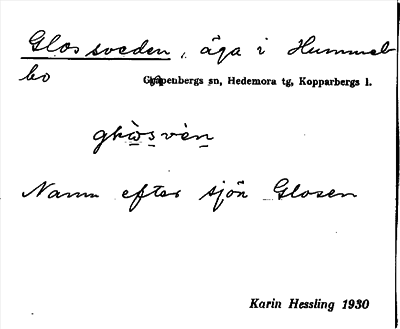 Glossveden, äga i Hummel-
bo
Garpenbergs sn, Hedemora tg, Kopparbergs l.
Namn efter sjön Glosen
Karin Hessling 1930